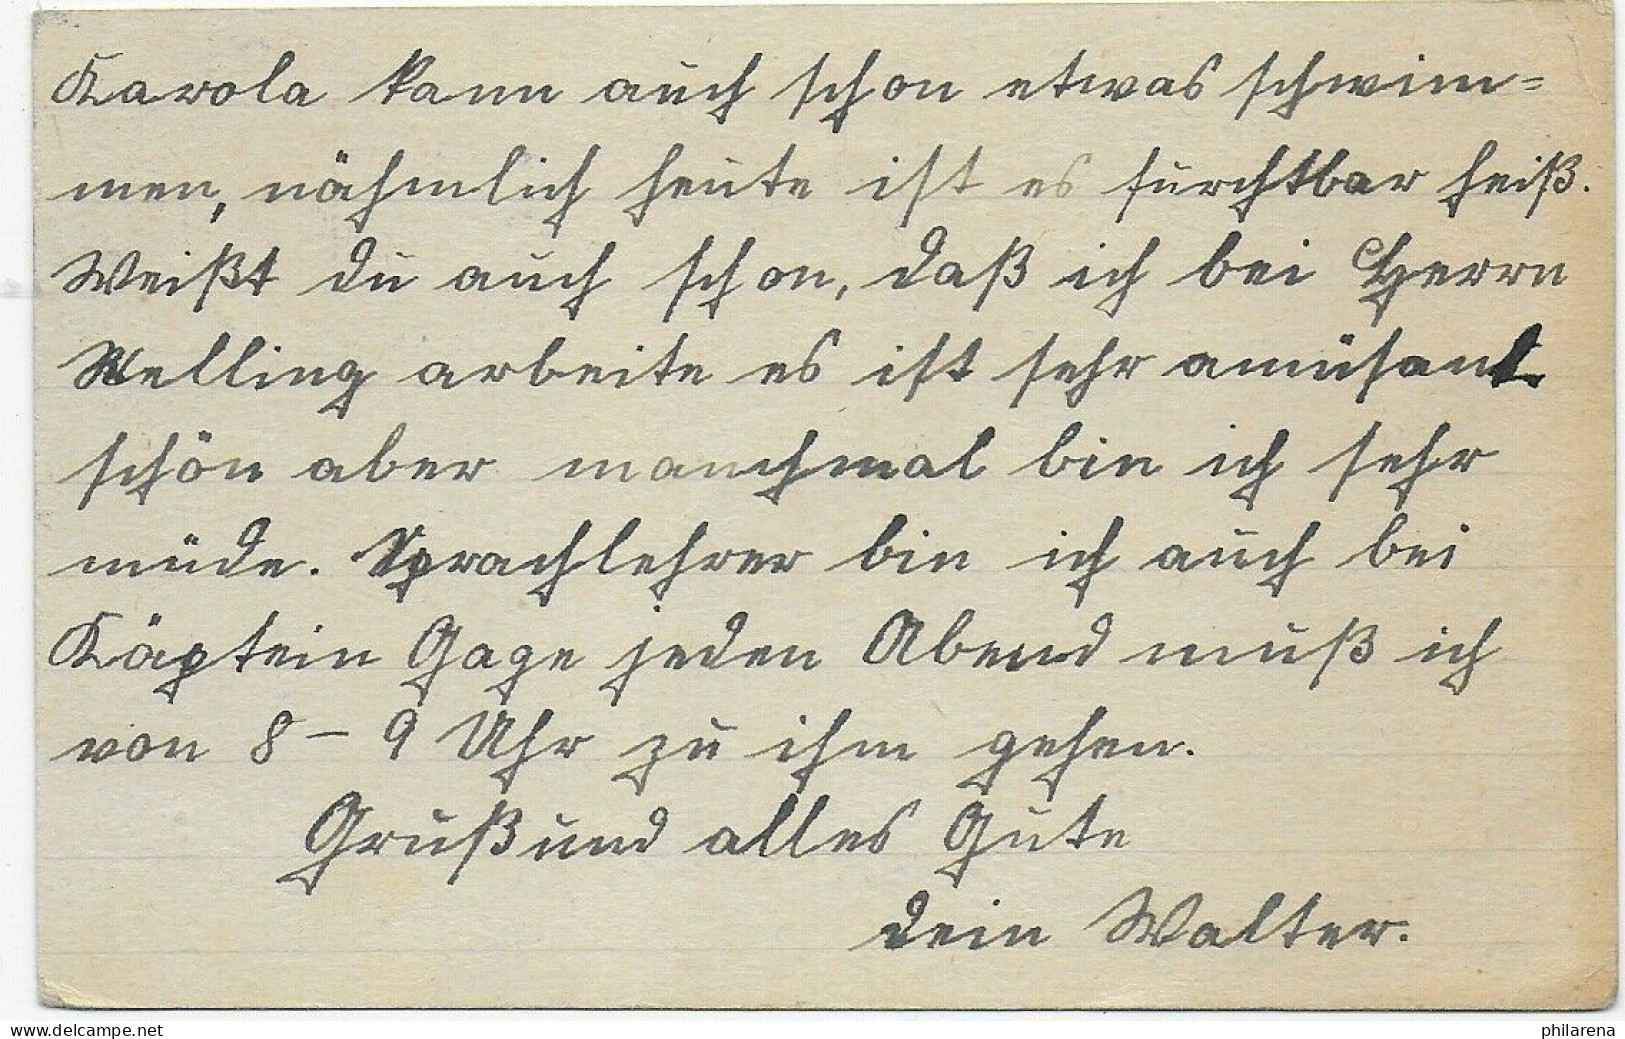 Karola kann auch schon etwas schwim=
men, nähmlich heute ist es furchtbar heiß.
Weißt du auch schon, daß ich bei Herrn
Welling arbeite es ist sehr amüsant
schön aber manchmal bin ich sehr
müde. Sprachlehrer bin ich auch bei
Käptein Gage jeden Abend muß ich
von 8 – 9 Uhr zu ihm gehen.
Gruß und alles Gute
dein Walter.
www.delcampe.net
philarena